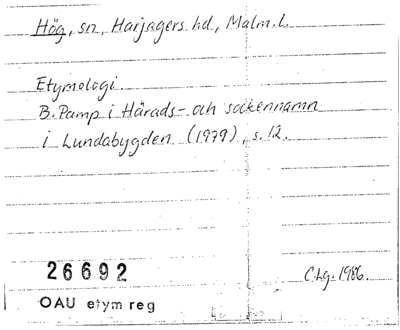 Hög, sn, Harjagers hd, Malm. l.
Etymologi
B. Pamp i Härads- och sockennamn
i Lundabygden (1979), s. 12.
26692
C.Lg. 1986.
OAU etym reg